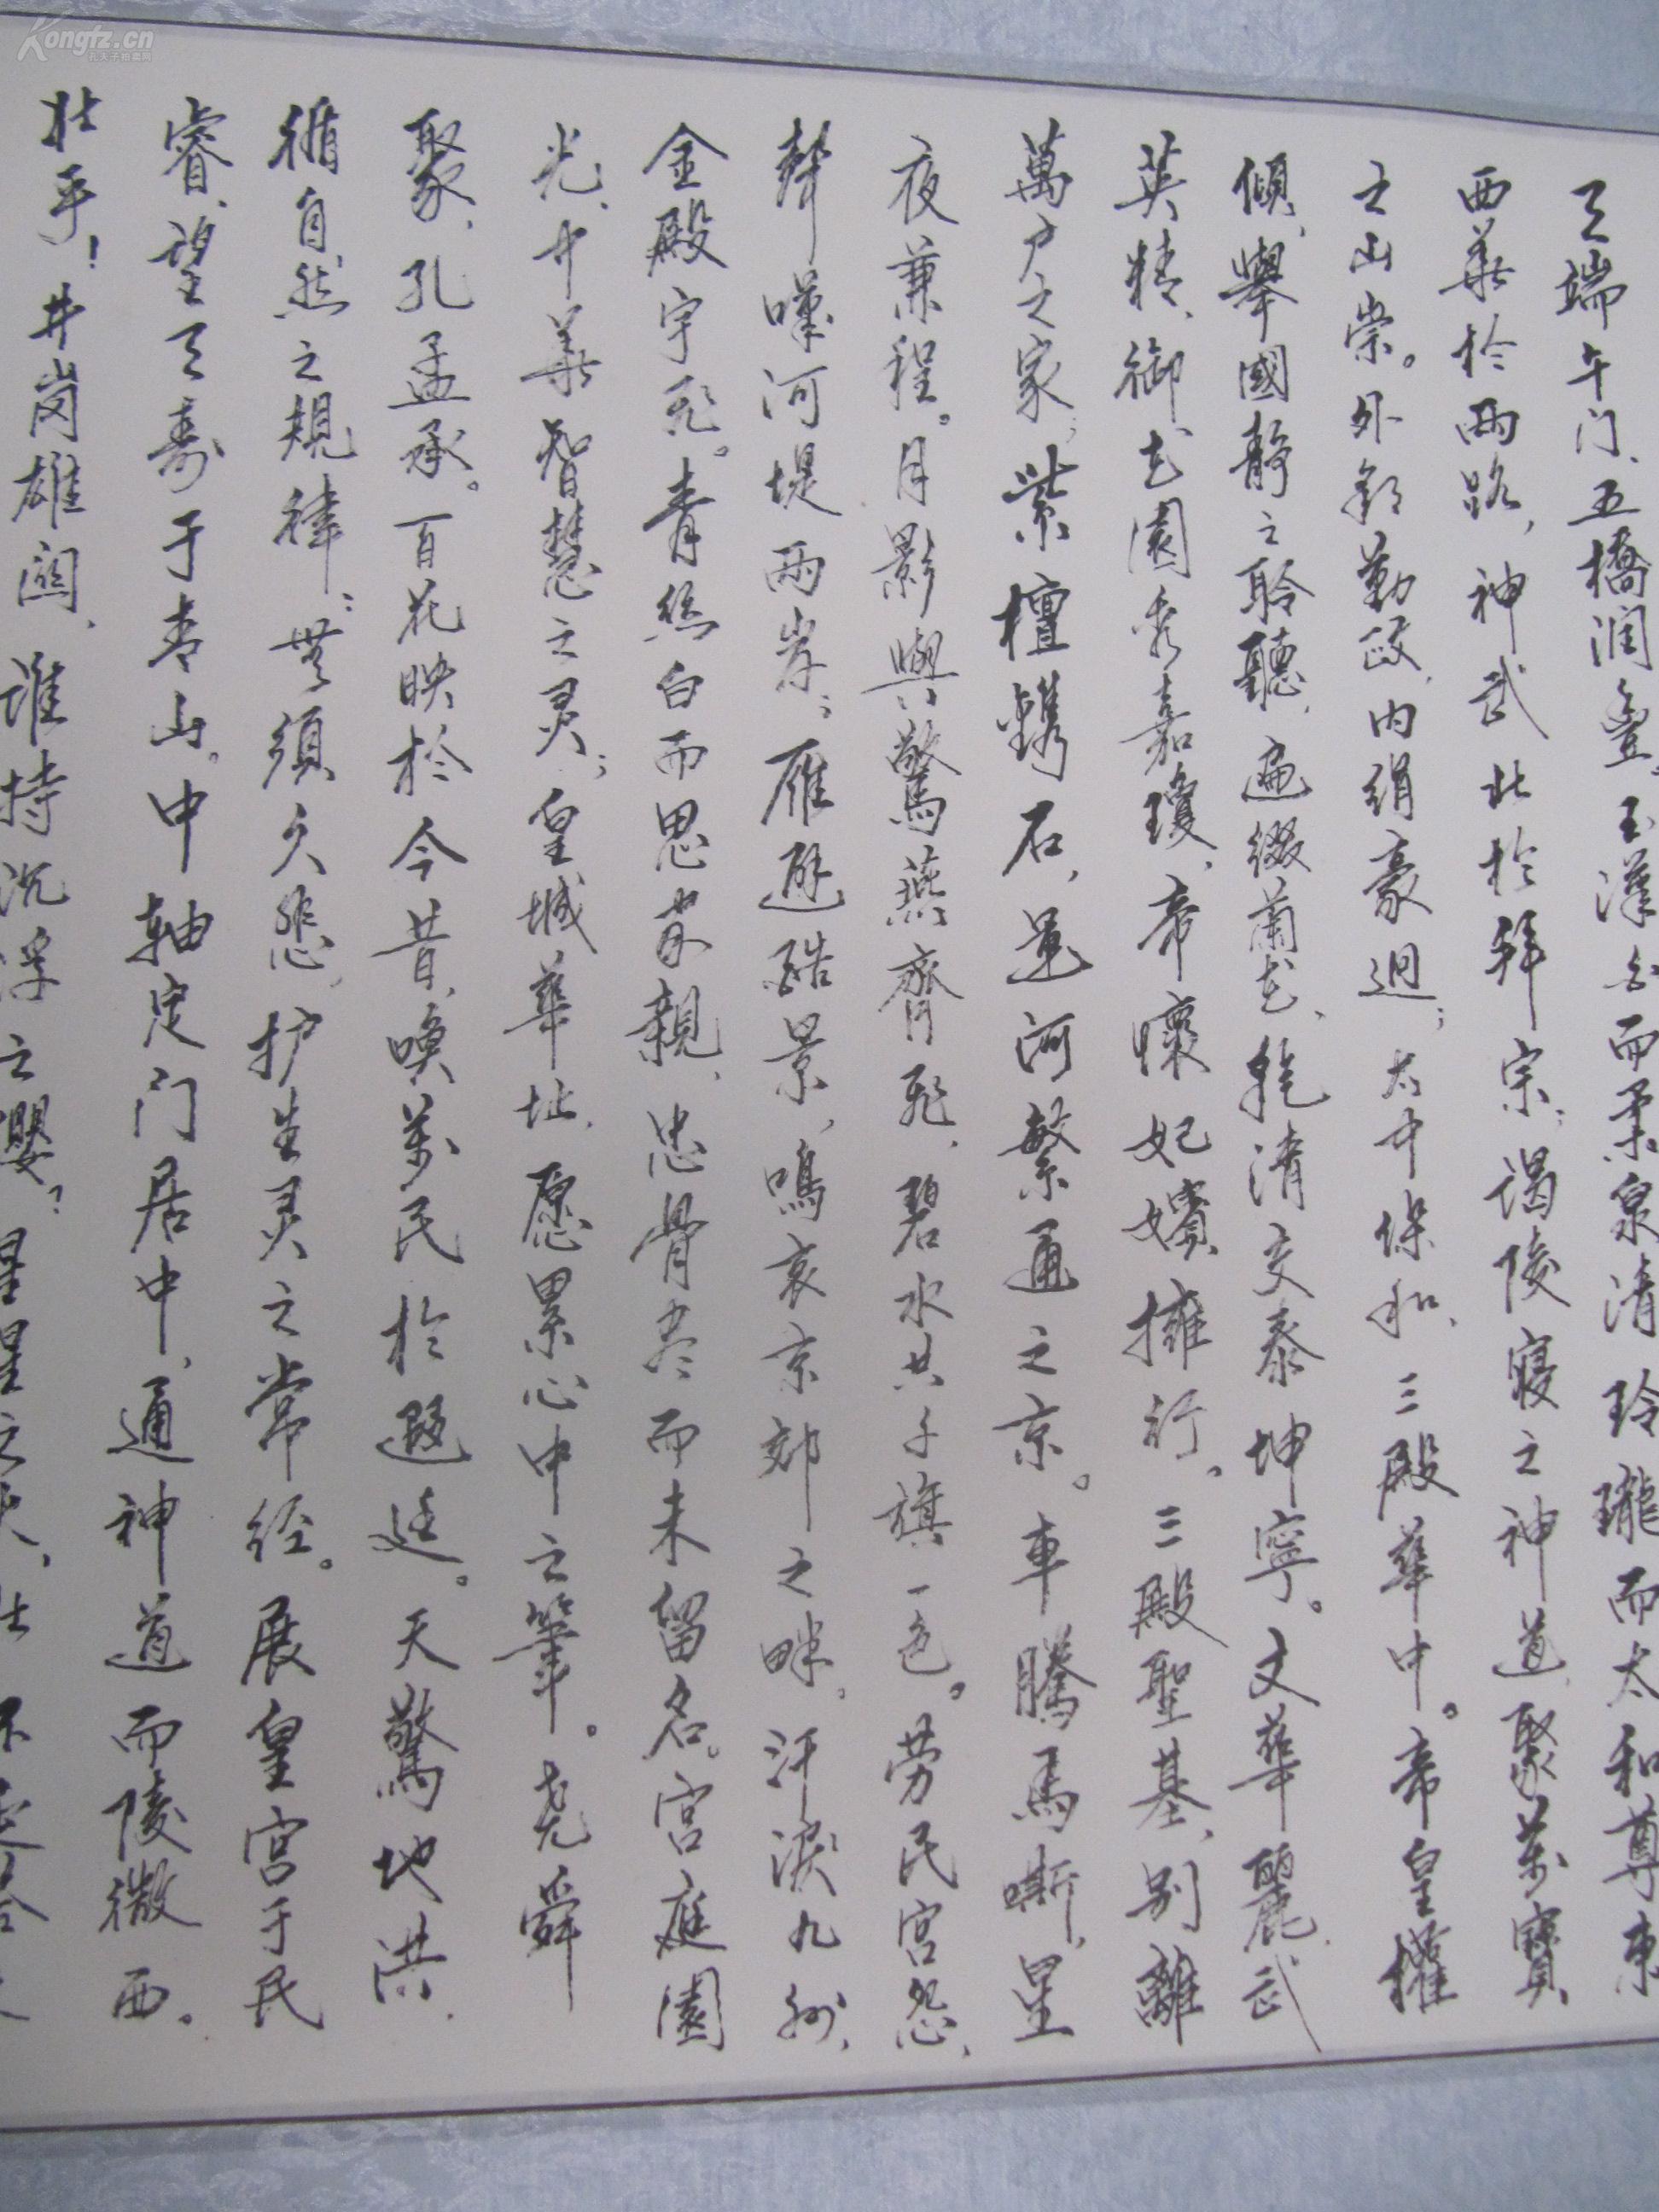 天端午门、五橋润疊。玉漢白而柔泉清玲瓏而太和尊東
西華於兩路，神武北於拜宗；謁陵寝之神道，聚萬寶
之山崇。外朝勤政，内绢豪迴；太中保和、三殿華中。帝皇權
傾，舉國静之聆聽，遍缀蘭花、乾清交泰坤寧。文華麗武
英精，御花園秀嘉瓊，帝懷妃嬪擁行。三殿聖基，别離
萬户之家；紫檀鐫石，運河繁通之京。車騰馬嘶，星
夜兼程。月影與驚燕齊飛，碧水共子旗一色。劳民宫怨，
聲嘆河堤兩岸；雁避酷景，鳴哀京郊之畔。汗淚九州，
金殿宇飛。青絲白而思家親，忠骨尽而未留名。宫庭園
光，中華智慧之灵；皇城華址，愿累心中之筆。尧舜
聚，孔孟承。百花映於今昔，喚萬民於遐廷。天驚地洪，
循自然之規律；無須久悲，护生灵之常经。展皇宫于民
睿，望天壽于青山。中轴定门居中，通神道而陵微西。
壮乎！井岗雄關，谁持沉浮之纓？星星之火，
Kongfz.cn